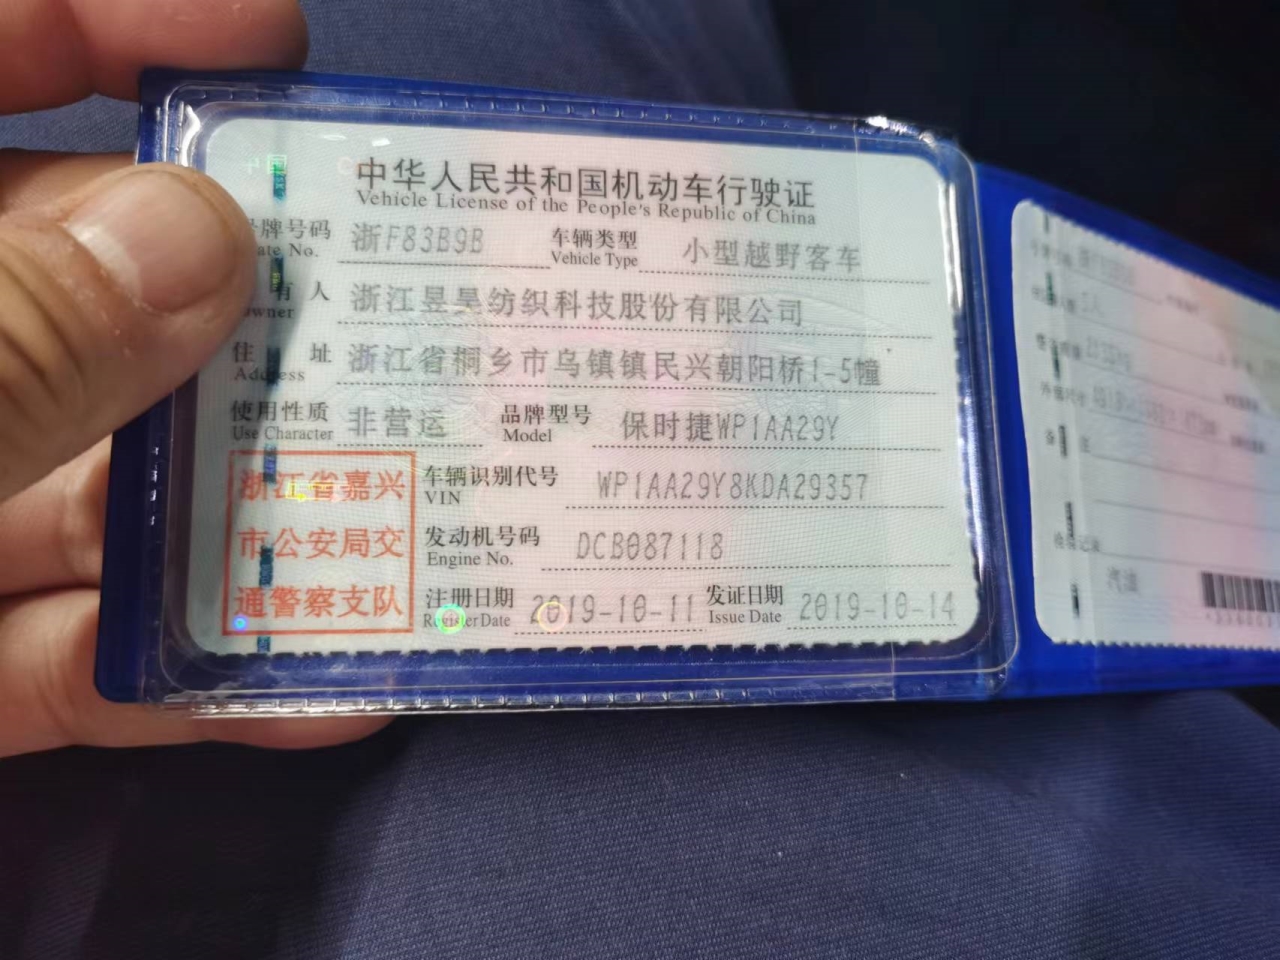 中华人民共和国机动车行驶证
Vehicle License of the People's Republic of China
牌号码 浙F83B9B 车辆类型 小型越野客车
ate No. Vehicle Type
有人 浙江昱昊纺织科技股份有限公司
wner
住址 浙江省桐乡市乌镇镇民兴朝阳桥1-5幢
Address
使用性质 非营运 品牌型号 保时捷WP1AA29Y
Use Character Model
浙江省嘉兴
市公安局交
通警察支队
车辆识别代号 WP1AA29Y8KDA29357
VIN
发动机号码 DCB087118
Engine No.
注册日期 2019-10-11 发证日期 2019-10-14
Register Date Issue Date
汽油